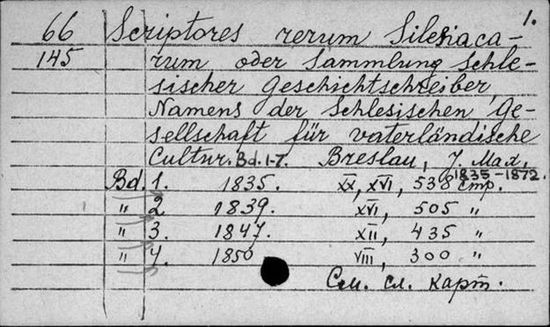 1.
66 Scriptores rerum Silesiaca-
145 rum oder Sammlung Schle-
sischer Geschichtschreiber,
Namens der Schlesischen Ge-
sellschaft für vaterländische
Cultur. Bd. 1-7. Breslau, J. Max,
1835-1872.
Bd. 1. 1835. XX, XVI, 538 стр.
" 2. 1839. XVI, 505 "
" 3. 1847. XII, 435 "
" 4. 1850 VIII, 300 "
См. сл. карт.